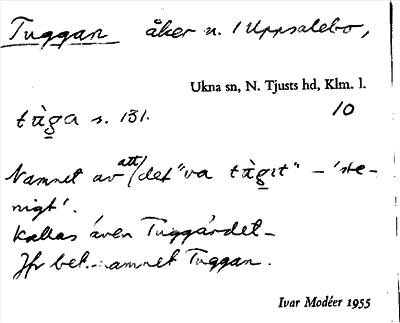 Tuggan åker n. /Uppsalebo,
Ukna sn, N. Tjusts hd, Klm. l.
tùga s. 131. 10
Namnet av att/det "va tùgɪt" – 'ste-
nigt'.
Kallas även Tuggärdet –
Jfr bet. namnet Tuggan.
Ivar Modéer 1955